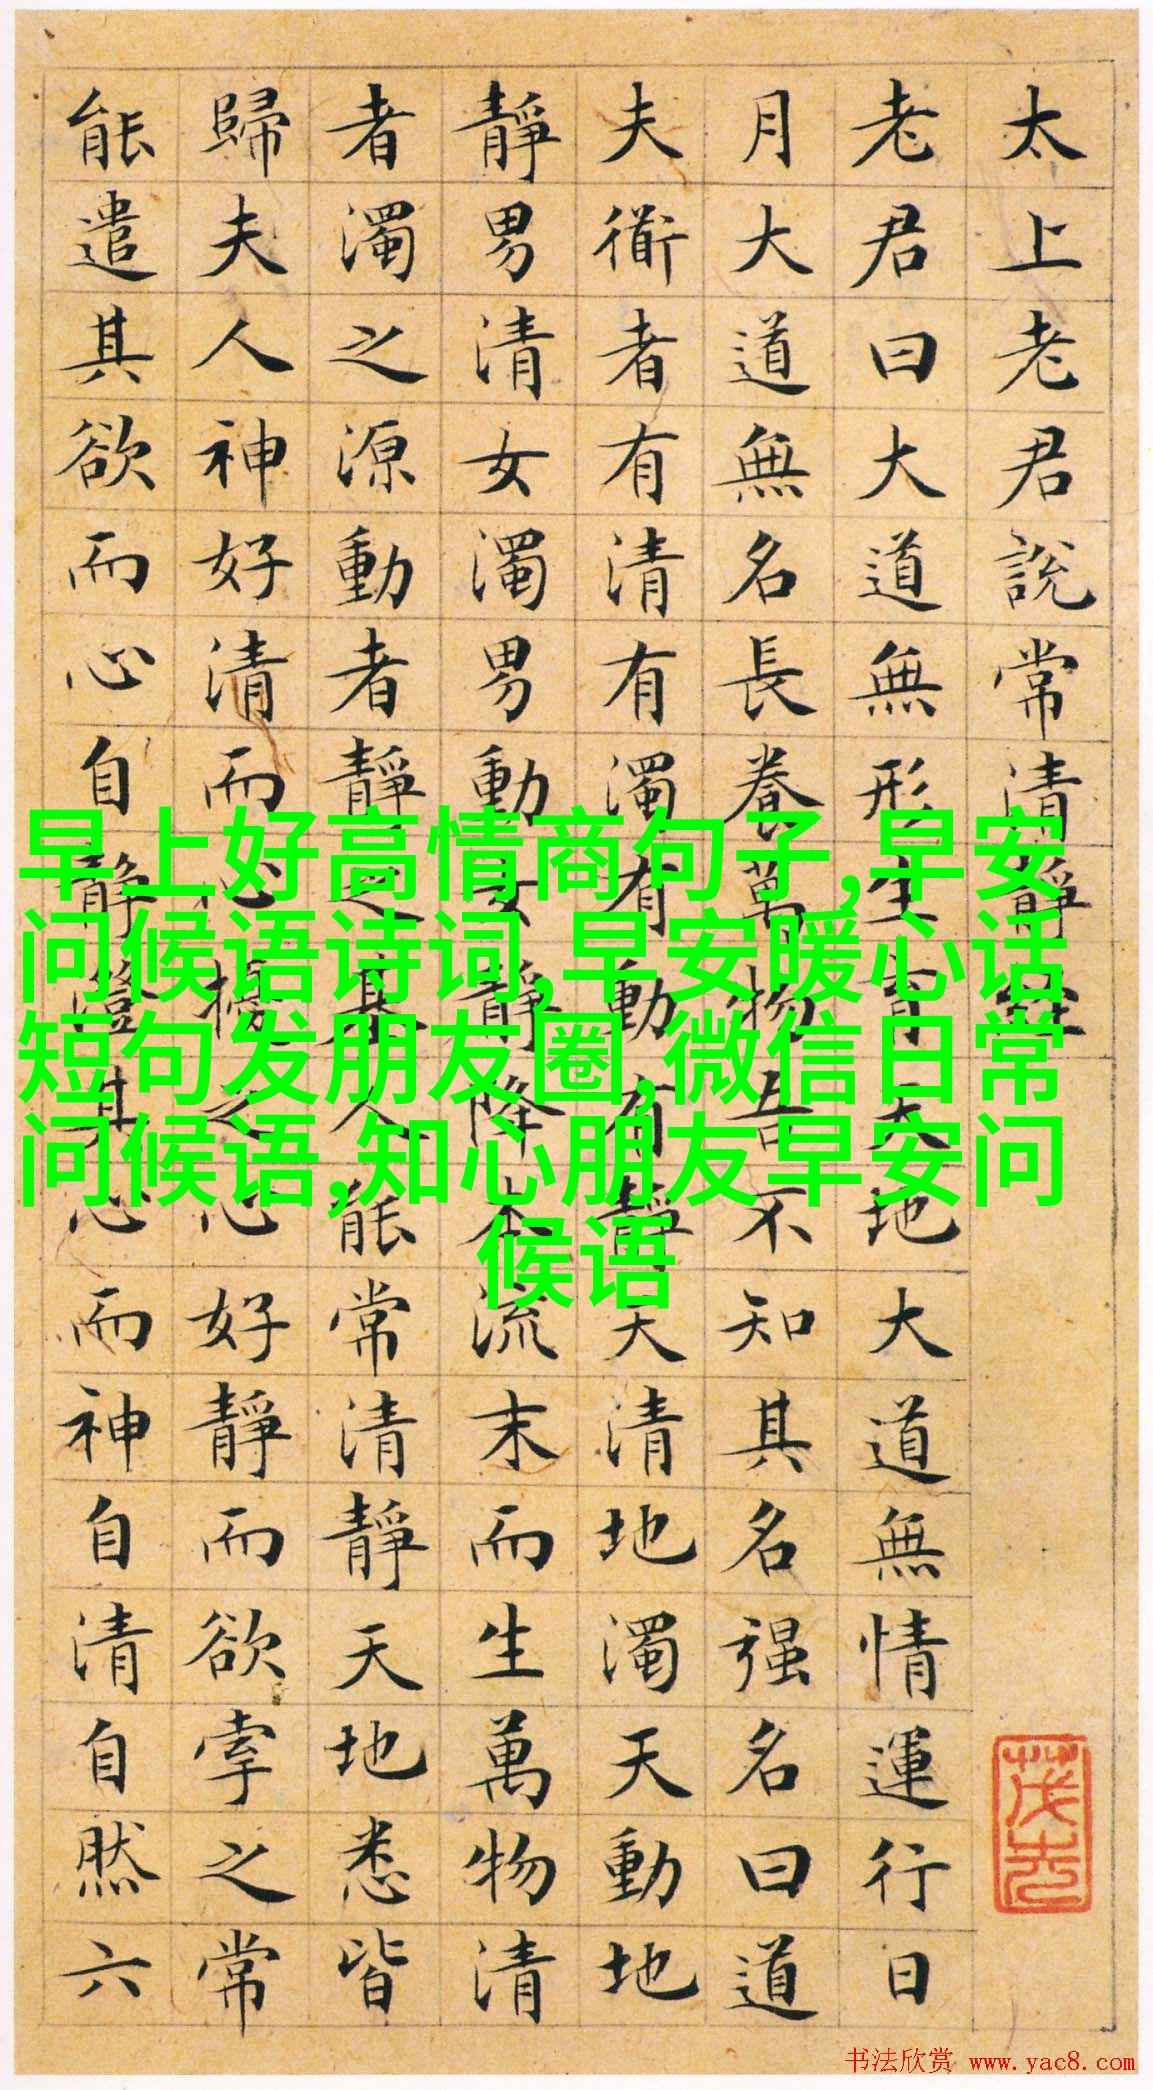 太上老君說常清靜經
老君曰大道無形生育天地大道無情運行日
月大道無名長養萬物吾不知其名强名曰道
夫衜者有清有濁有動有靜天清地濁天動地
靜男清女濁男動女靜降本流末而生萬物清
者濁之源動者靜之基人能常清靜天地悉皆
歸夫人神好清而心擾之心好靜而欲牽之常
能遣其欲而心自靜澄其心而神自清自然六
早上好高情商句子,早安
问候语诗词,早安暖心话
短句发朋友圈,微信日常
问候语,知心朋友早安问
候语
书法欣赏 www.yac8.com